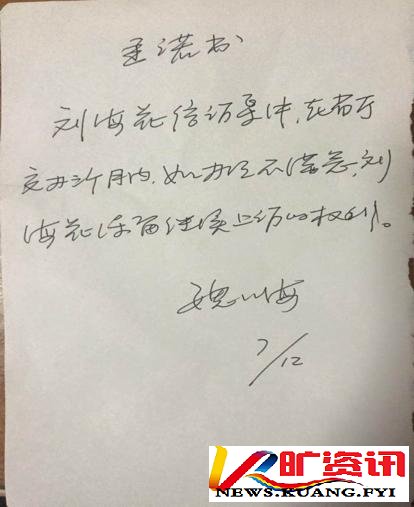 承诺书
刘海花信访事件，在省厅
交办三个月内，如办理不满意，刘
海花保留继续上访的权利。
魏小海
7/12
旷资讯
NEWS.KUANG.FYI